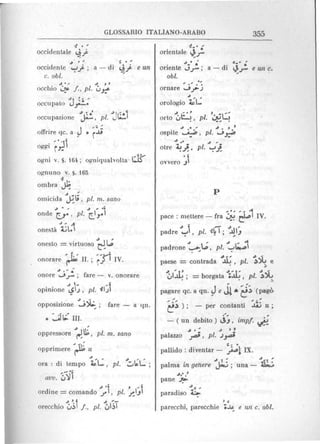 GLOSSARIO ITALIANO-ARABO 355
occidentale غَرْبِيّ
occidente غَرْب ; a — di غَرْبِيّ e un
c. obl.
occhio عَيْن f., pl. عُيُون
occupato مَشْغُول
occupazione شُغْل, pl. أَشْغَال
offrire qc. a قَدَّم ل
oggi اَلْيَوْم
ogni v. § 164; ogniqualvolta كُلَّمَا
ognuno v. § 165
ombra ظِلّ
omicida قَاتِل, pl. m. sano
onde مَوْج, pl. أَمْوَاج
onestà
onesto = virtuoso صَالِح
onorare II.; IV.
onore شَرَف; fare — v. onorare
opinione رَأْي, pl. آرَاء
opposizione خِلَاف; fare — a qn.
III.
oppressore ظَالِم, pl. m. sano
opprimere ظلم
ora : di tempo سَاعَة, pl. سَاعَات;
avv. اَلْآنَ
ordine = comando أَمْر, pl. أَوَامِر
orecchio أُذُن f., pl. آذَان
orientale شَرْقِيّ
oriente شَرْق; a — di شَرْقِيّ e un c.
obl.
ornare
orologio سَاعَة
orto
ospite ضَيْف, pl. ضُيُوف
otre
ovvero أَوْ
P
pace : mettere — fra بَيْنَ IV.
padre أَب, pl. آبَاء
padrone صَاحِب, pl. أَصْحَاب
paese = contrada بَلَد, pl. بِلَاد e
بُلْدَان; = borgata
pagare qc. a qn. (pagò
); — per contanti
— (un debito)
palazzo قَصْر, pl. قُصُور
pallido : diventar — IX.
palma in genere نَخْل; una — نَخْلَة
pane خُبْز
paradiso جَنَّة
parecchi, parecchie e un c. obl.